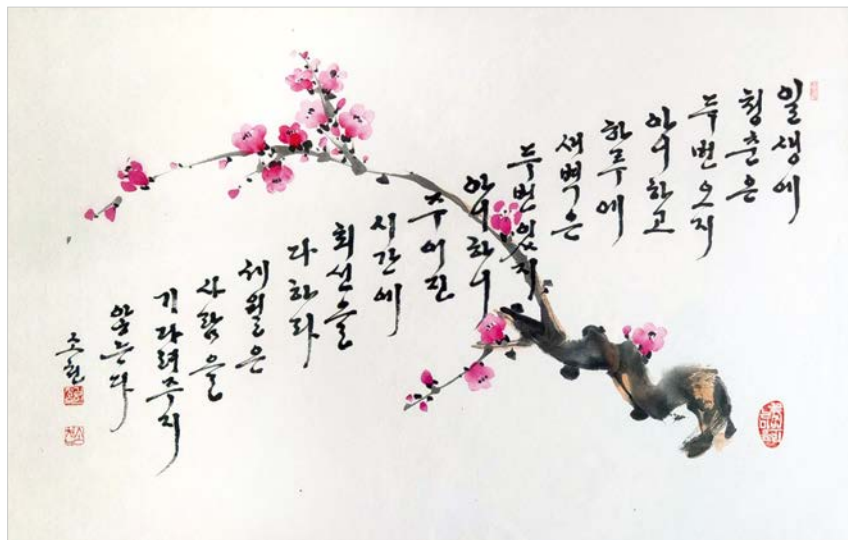 일생에
청춘은
두번오지
아니하고
하루에
새벽은
두번있지
아니하니
주어진
시간에
최선을
다하라
세월은
사람을
기다려주지
않는다